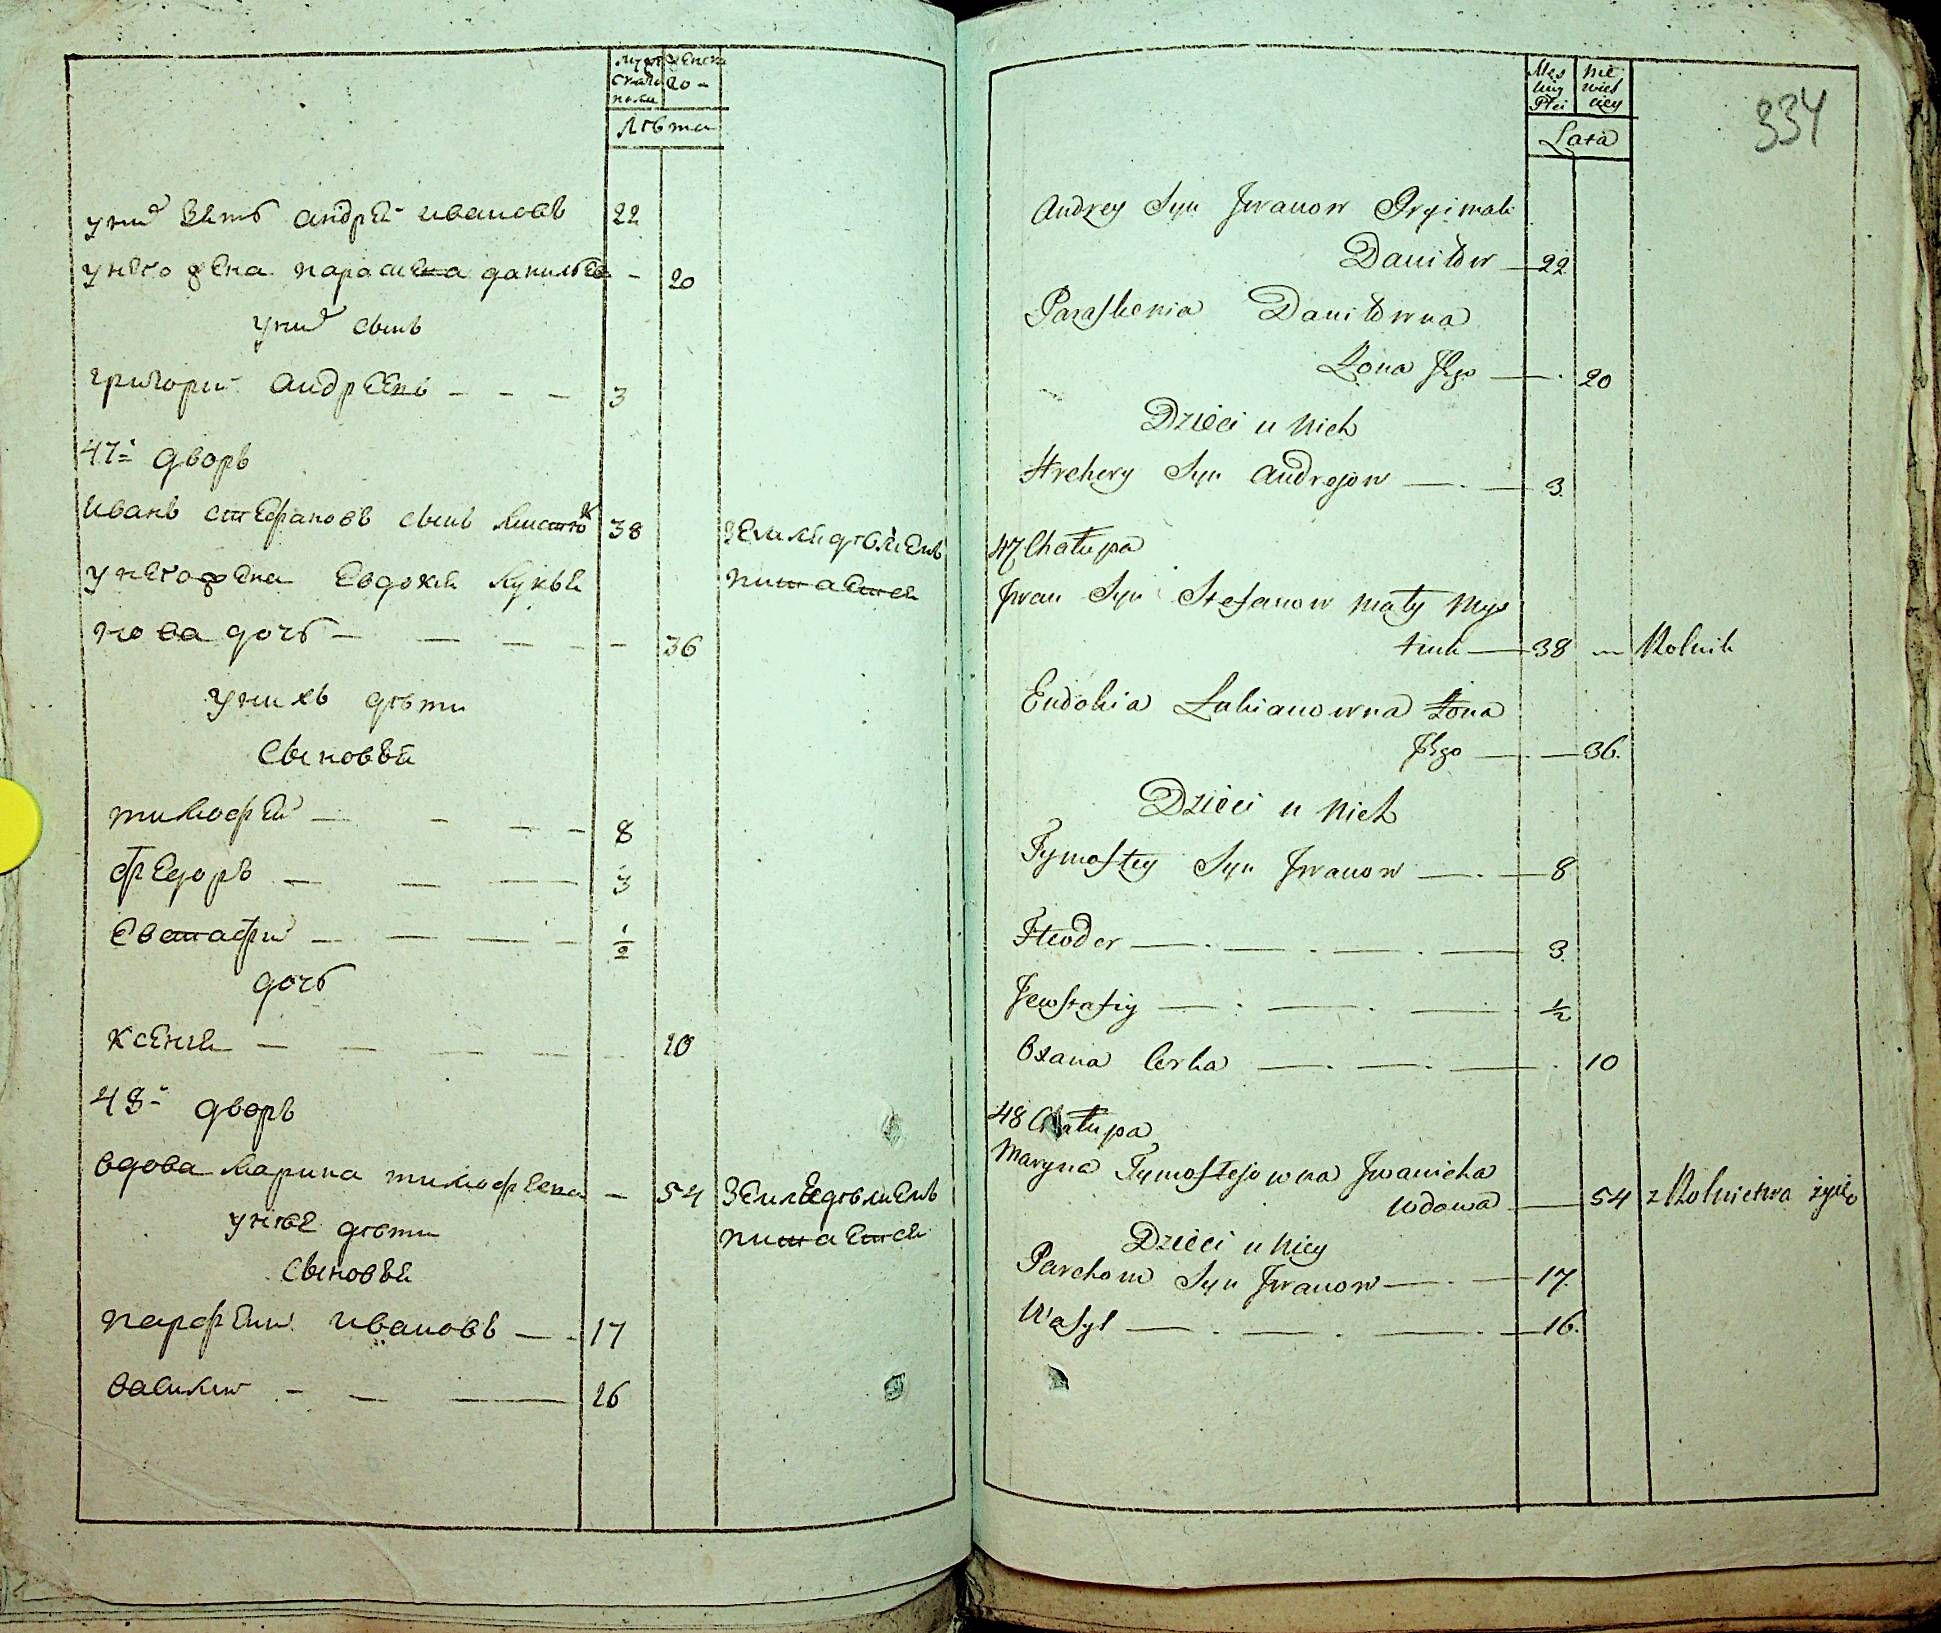 мужеска полу
женска го -
Лѣта
у них зять андрей ивановъ 22
у него жена парасĸева данилова - 20
у них сынъ
григорий андрѣевъ - - - 3
47й дворъ
иванъ стефановъ сынъ 38 земледѣлиемъ
у него жена евдокия лукья питается
нова дочь - - - - - 36
у нихъ дѣти
сыновья
тимофей - - - - 8
федоръ - - - 3
евстафий - - - - 1/2
дочь
ксения - - - - - 10
48й дворъ
вдова марина тимофеева - 54 земледѣлиемъ
у нее дѣти питается
сыновья
парфений ивановъ - - 17
василий - - - 16
Męs kiey Płci
nie wies ciey
Lata
334
Andrey Syn Jwanow Pryimak
Daniłow — 22
Paraskewia Daniłowna
Żona Jego — . 20
Dzieci u Nich
Hrehery Syn Andrejow — . — 3.
47 Chałupa
Jwan Syn Stefanow Mały Mys
tiuk — 38 — Rolnik
Eudokia Łukianowna Żona
Jego — — 36.
Dzieci u Nich
Tymoftey Syn Jwanow — . — 8
Fteoder — . — . — . — 3.
Jewstafiy — . — . — . 1/2
Oxana Corka — . — . — . 10
48 Chałupa
Maryna Tymoftejowna Jwanicha
Wdowa — 54 z Rolnictwa żyie
Dzieci u Niey
Parchom Syn Jwanow — . — 17.
Wasyl — . — . — . — 16.